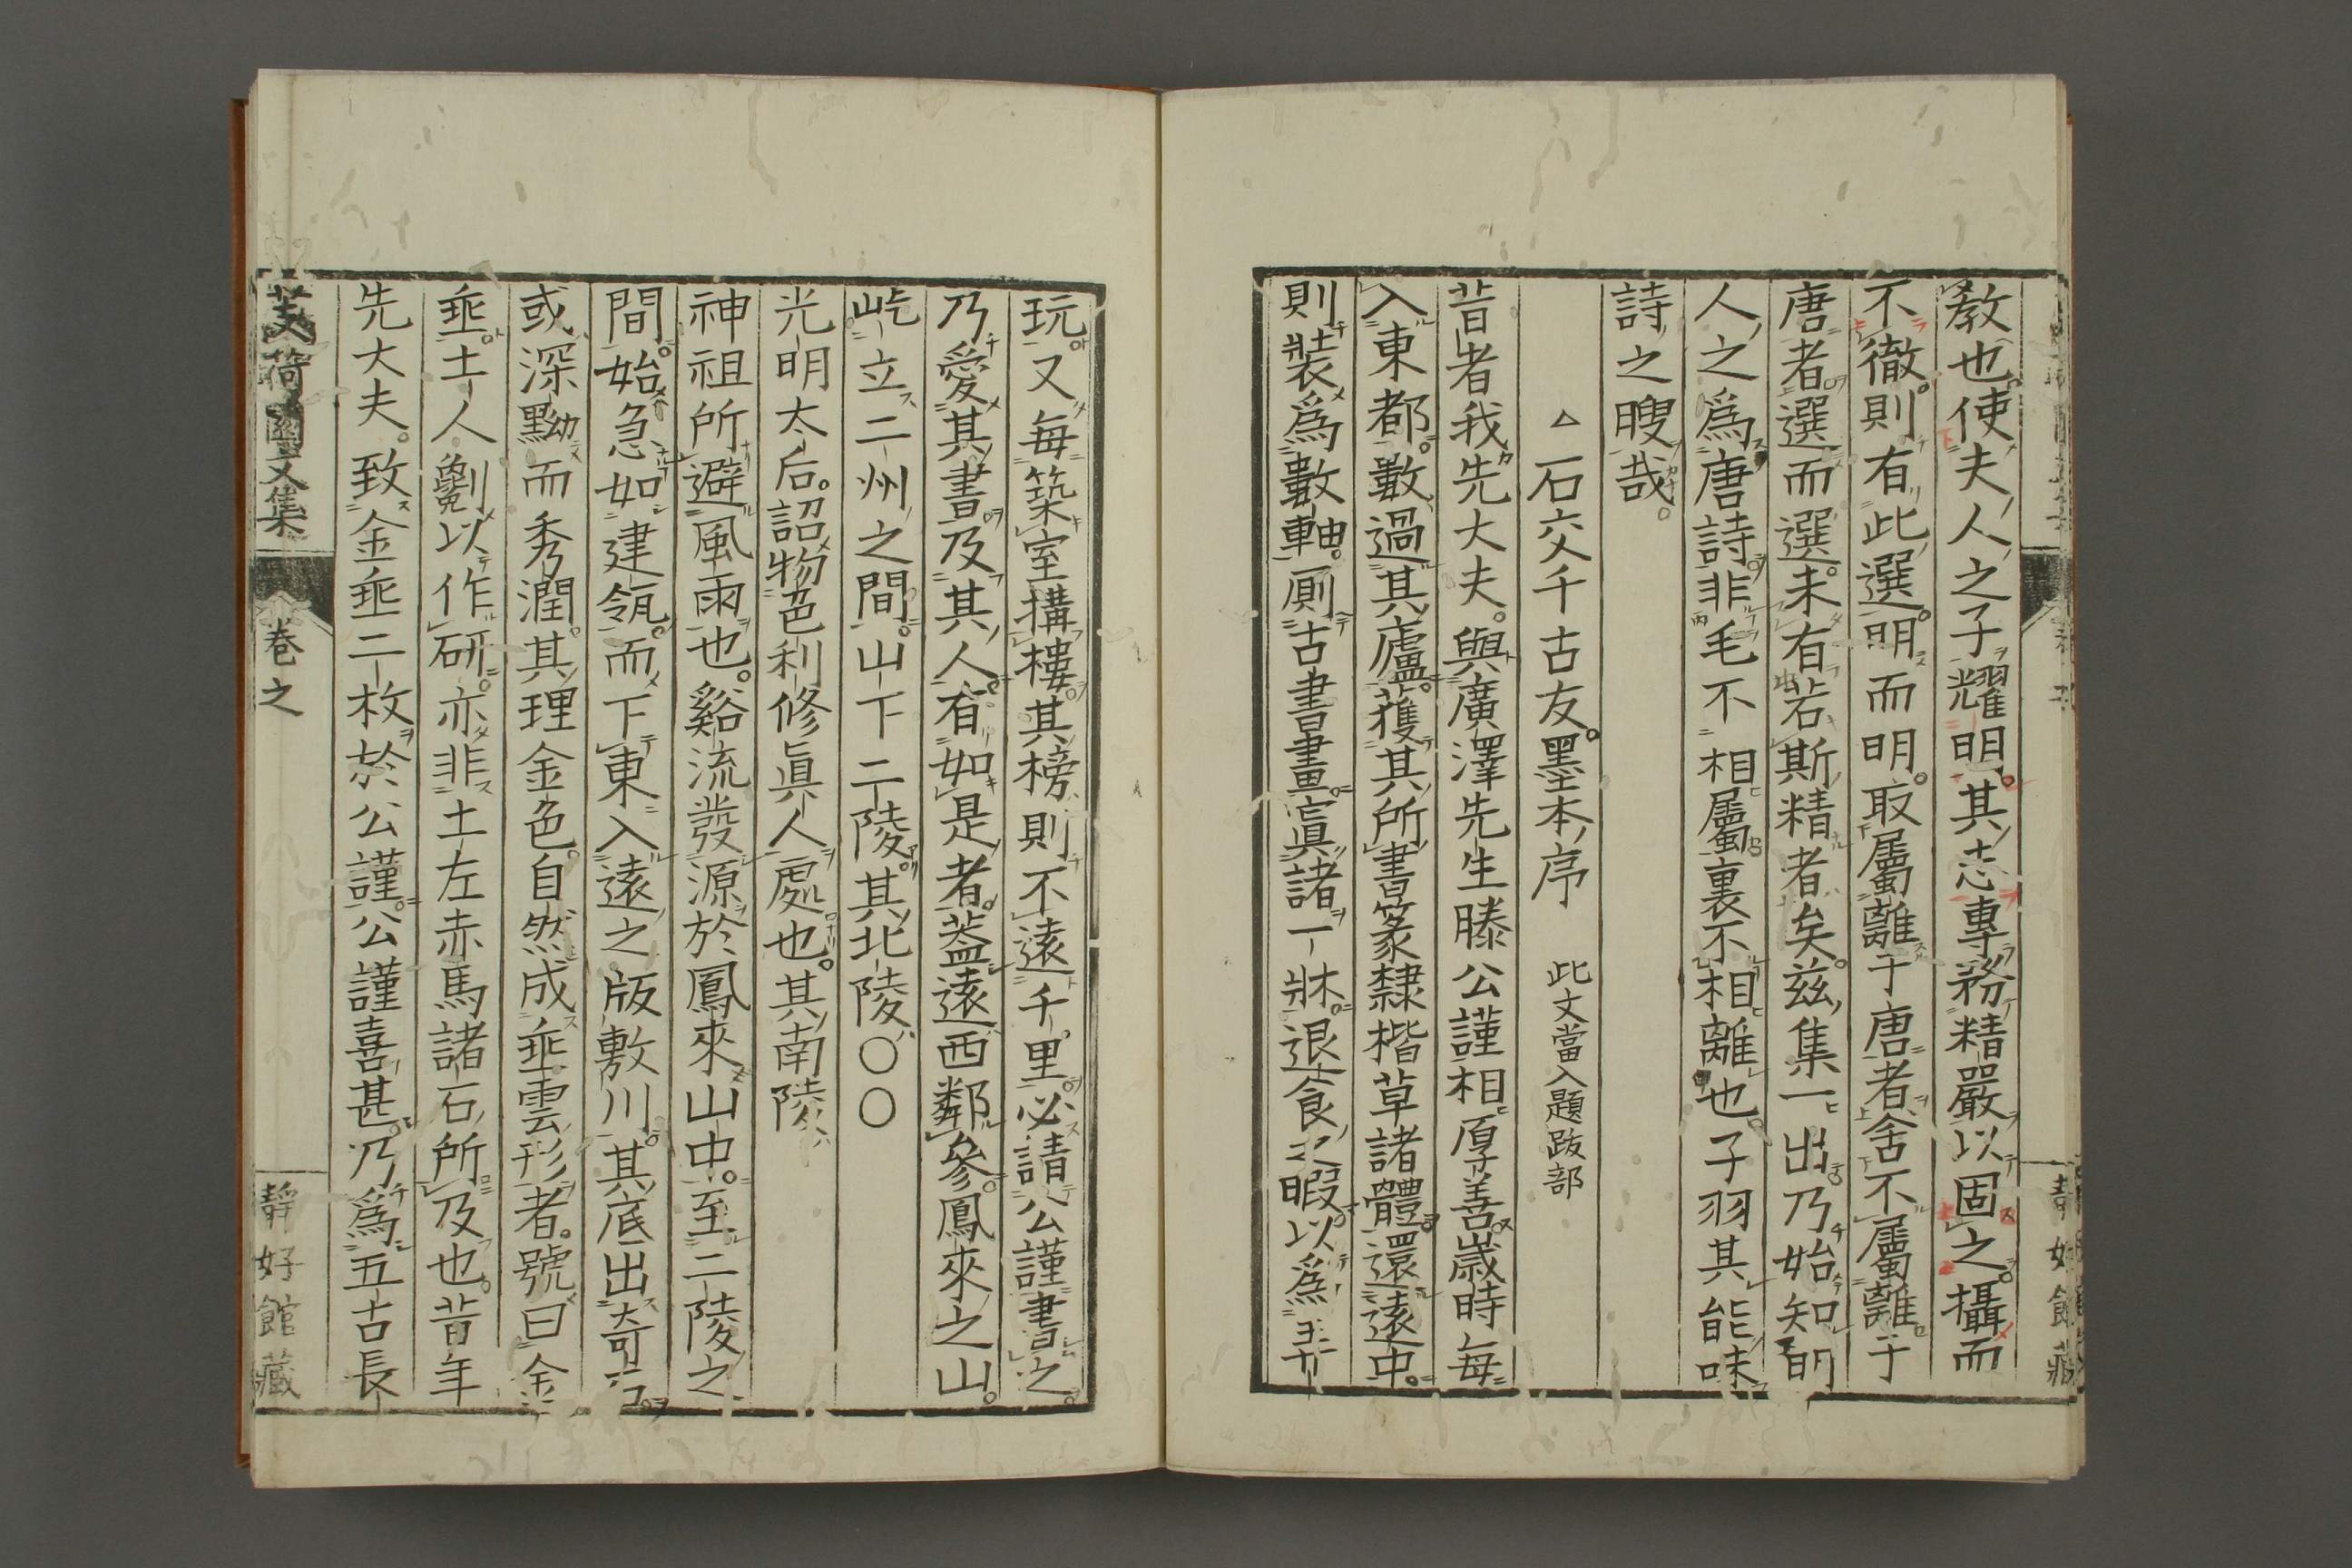 教也使夫人之子耀明其志專務精嚴以固之攝而
不徹則有此選明而明取屬離于唐者舍不屬離于
唐者選而選未有若斯精者矣兹集一出乃始知明
人之爲唐詩非毛不相屬裏不相離也子羽其能味
詩之腴哉
△石交千古友墨本序 此文當入題跋部
昔者我先大夫與廣澤先生滕公謹相厚善歲時每
入東都數過其廬獲其所書篆隸楷草諸體還遠中
則裝爲數軸厠古書畫寘諸一牀退食之暇以爲弄
玩又每築室搆樓其榜則不遠千里必請公謹書之
乃愛其書及其人有如是者葢遠西鄰參鳳來之山
屹立二州之間山下二陵其北陵〇〇
光明太后詔物色利修眞人處也其南陵
神祖所避風雨也谿流發源於鳳來山中至二陵之
間始急如建瓴而下東入遠之版敷川其底出奇石
或深黝而秀潤其理金色自然成垂雲形者號曰金
垂土人劖以作研亦非土左赤馬諸石所及也昔年
先大夫致金垂二枚於公謹公謹喜甚乃爲五古長
芰荷園文集 卷之 靜好館藏